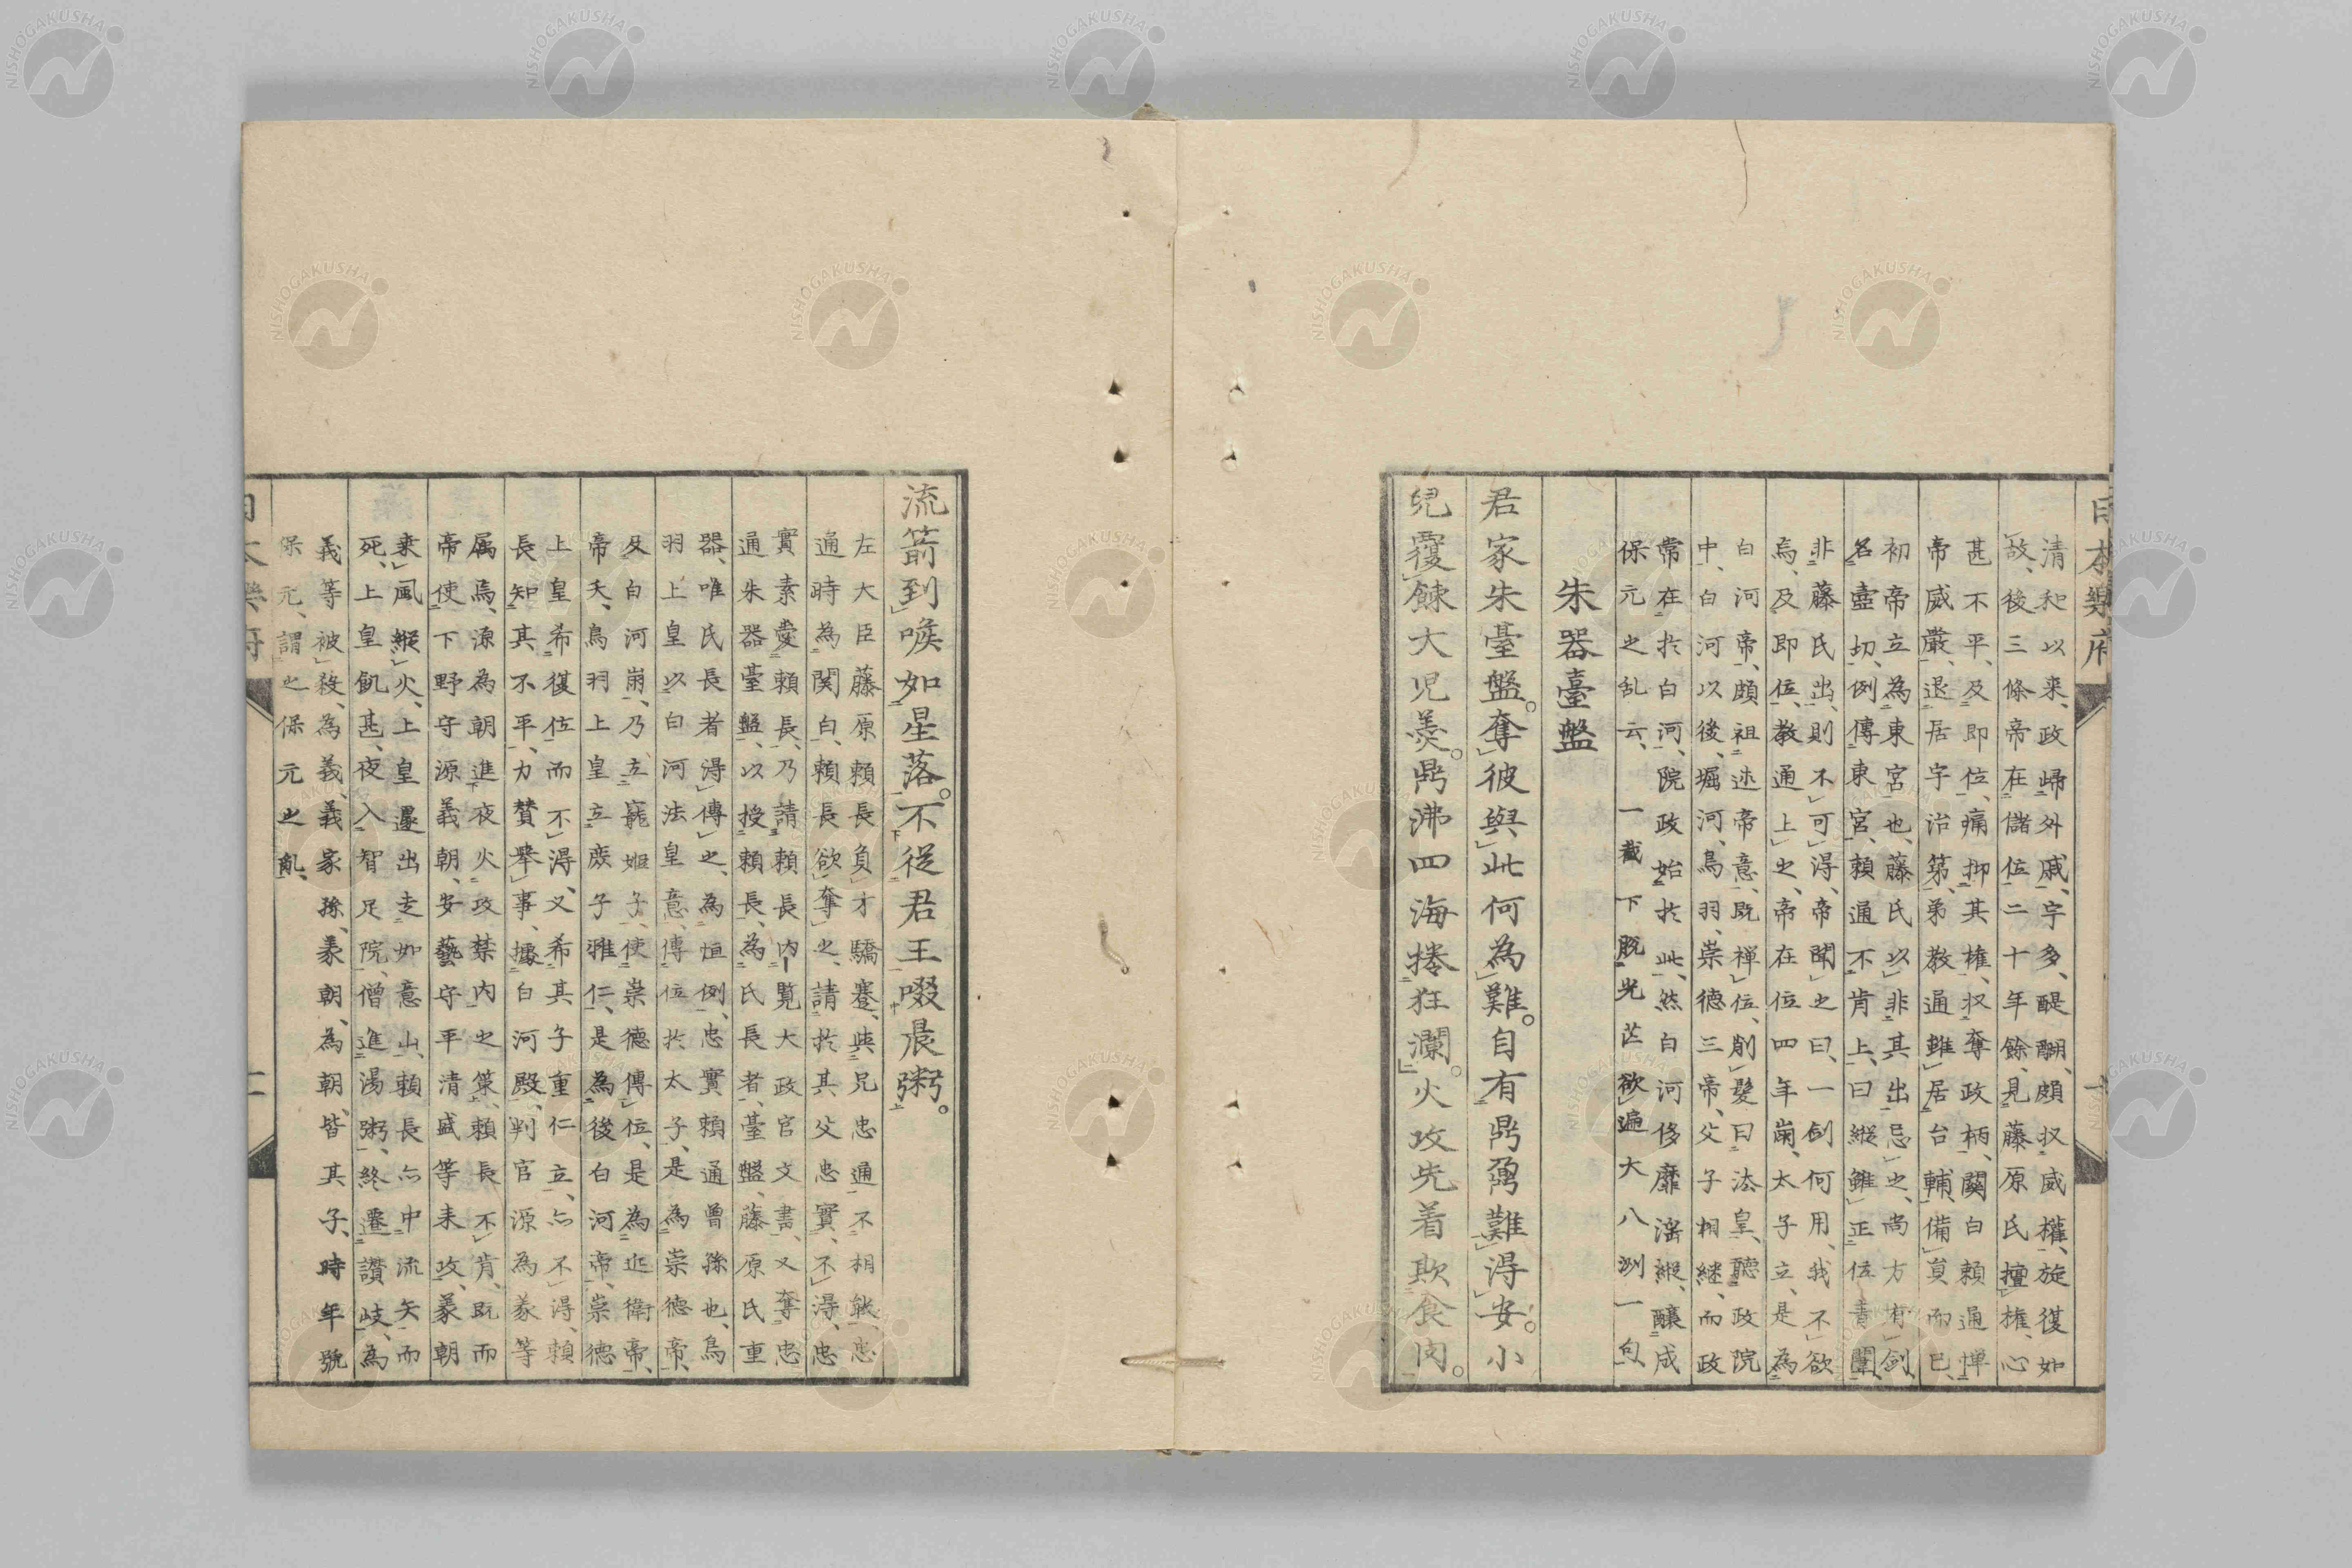 日本樂府
清和以来、政歸外戚、宇多、醍醐、頗収威權、旋復如
故、後三條帝在儲位二十年餘、見藤原氏擅權、心
甚不平、及即位、痛抑其権、収奪政柄、関白頼通憚
帝威嚴、退居宇治第、弟教通雖居台輔、備員而已、
初帝立為東宮也、藤氏以非其出忌之、尚方有剣、
名壺切、例傳東宮、頼通不肯上、曰縦雖正位青闈、
非藤氏出、則不可得、帝聞之曰、一剣何用、我不欲
焉、及即位、教通上之、帝在位四年崩、太子立、是為
白河帝、頗祖述帝意、既禅位、削髮曰法皇、聽政院
中、白河以後、堀河、鳥羽、崇徳三帝、父子相継、而政
常在於白河、院政始於此、然白河侈靡淫縦、釀成
保元之乱云、一截下脱光芒欲遍大八洲一句、
朱器臺盤
君家朱臺盤。奪彼與此何為難。自有鼎鼐難得安。小
兒覆餗大児羮。鼎沸四海捲狂瀾。火攻先着欺食肉。
流箭到喉如星落。不從君王啜晨粥。
左大臣藤原頼長負才驕蹇、與兄忠通不相能、忠
通時為関白、頼長欲奪之、請於其父忠實、不得、忠
實素愛頼長、乃請頼長内覧大政官文書、又奪忠
通朱器臺盤、以授頼長、為氏長者、臺盤、藤原氏重
器、唯氏長者得傳之、為恒例、忠實頼通曾孫也、鳥
羽上皇以白河法皇意、傳位於太子、是為崇徳帝、
及白河崩、乃立寵姫子、使崇徳傳位、是為近衛帝、
帝夭、鳥羽上皇立庶子雅仁、是為後白河帝、崇徳
上皇希復位而不得、又希其子重仁立、亦不得、頼
長知其不平、力賛舉事、據白河殿、判官源為義等
属焉、源為朝進夜火攻禁内之策、頼長不肯、既而
帝使下野守源義朝、安藝守平清盛等来攻、義朝
乗風縦火、上皇遽出走如意山、頼長亦中流矢而
死、上皇飢甚、夜入智足院、僧進湯粥、終遷讃岐、為
義等被殺、為義、義家孫、義朝、為朝、皆其子、時年號
保元、謂之保元之亂、
日本樂府